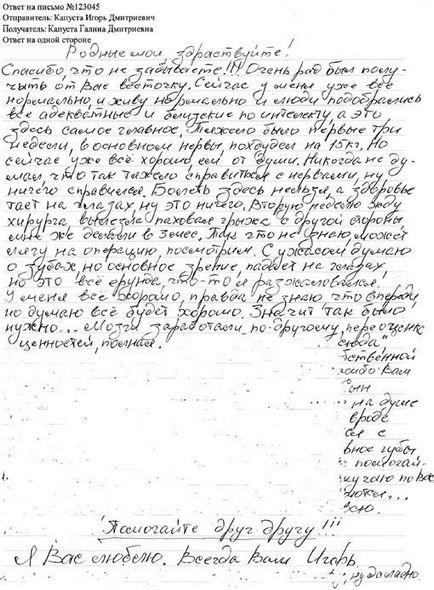 Ответ на письмо №123045
Отправитель: Капуста Игорь Дмитриевич
Получатель: Капуста Галина Дмитриевна
Ответ на одной стороне
Родные мои здраствуйте!
Спасибо, что не забываете!!! Очень рад был полу-
чыть от Вас весточку. Сейчас у меня уже всё
нормально, и живу нормально и люди подобрались
все адекватные и близкие по интелекту, а это
здесь самое главное. Тяжело было первые три
недели, в основном нервы, похудел на 15кг, но
сейчас уже всё хорошо, ем от души. Никогда не ду-
мал, что так тяжело справиться с нервами, ну
ничего справился. Болеть здесь нельзя, а здоровье
тает на глазах, ну это ничего. Вторую неделю жду
хирурга, вылезла паховая грыжа с другой стороны
мне же делали в Там что не знаю, может
лягу на операцию, посмотрим. С ужасом думаю
о зубах, но основное зрение падает на глазах,
но это всё ерунда, что-то я разжаловался.
У меня всё хорошо, правда не знаю что впереди,
но думаю всё будет хорошо. Значит так было
нужно... Мозги заработали по-другому, переоценк
ценностей, полная.
сюда"
бственной
либо Вам
сын
на душе
вроде
ся с
вное губы
помогай-
кучаю по Вас
ются...
сю.
Помогайте друг другу!!!
Я Вас люблю. Всегда Ваш Игорь